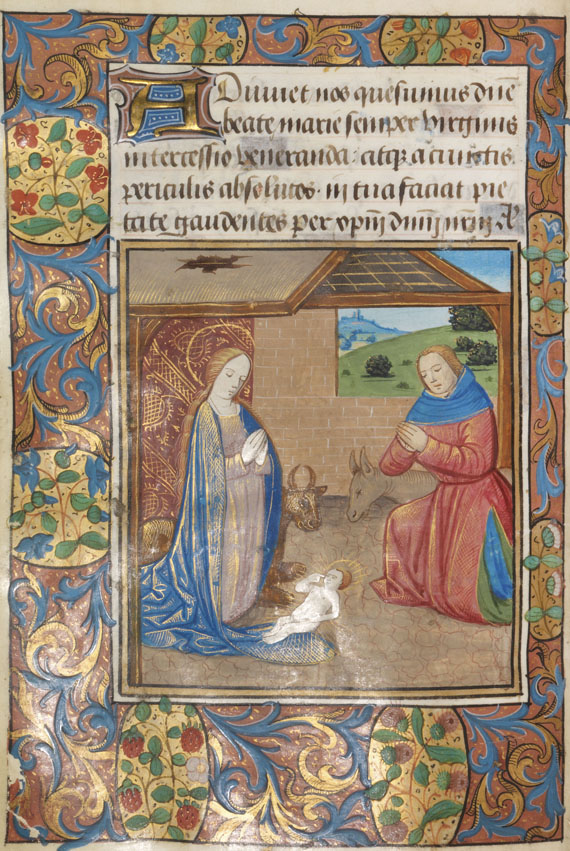 Adiuuet nos quesumus dñe
beate marie semper virginis
intercessio veneranda: atqȝ a cunctis
periculis absolutos· in tua faciat pie
tate gaudentes per xp̄m dñm nr̄m